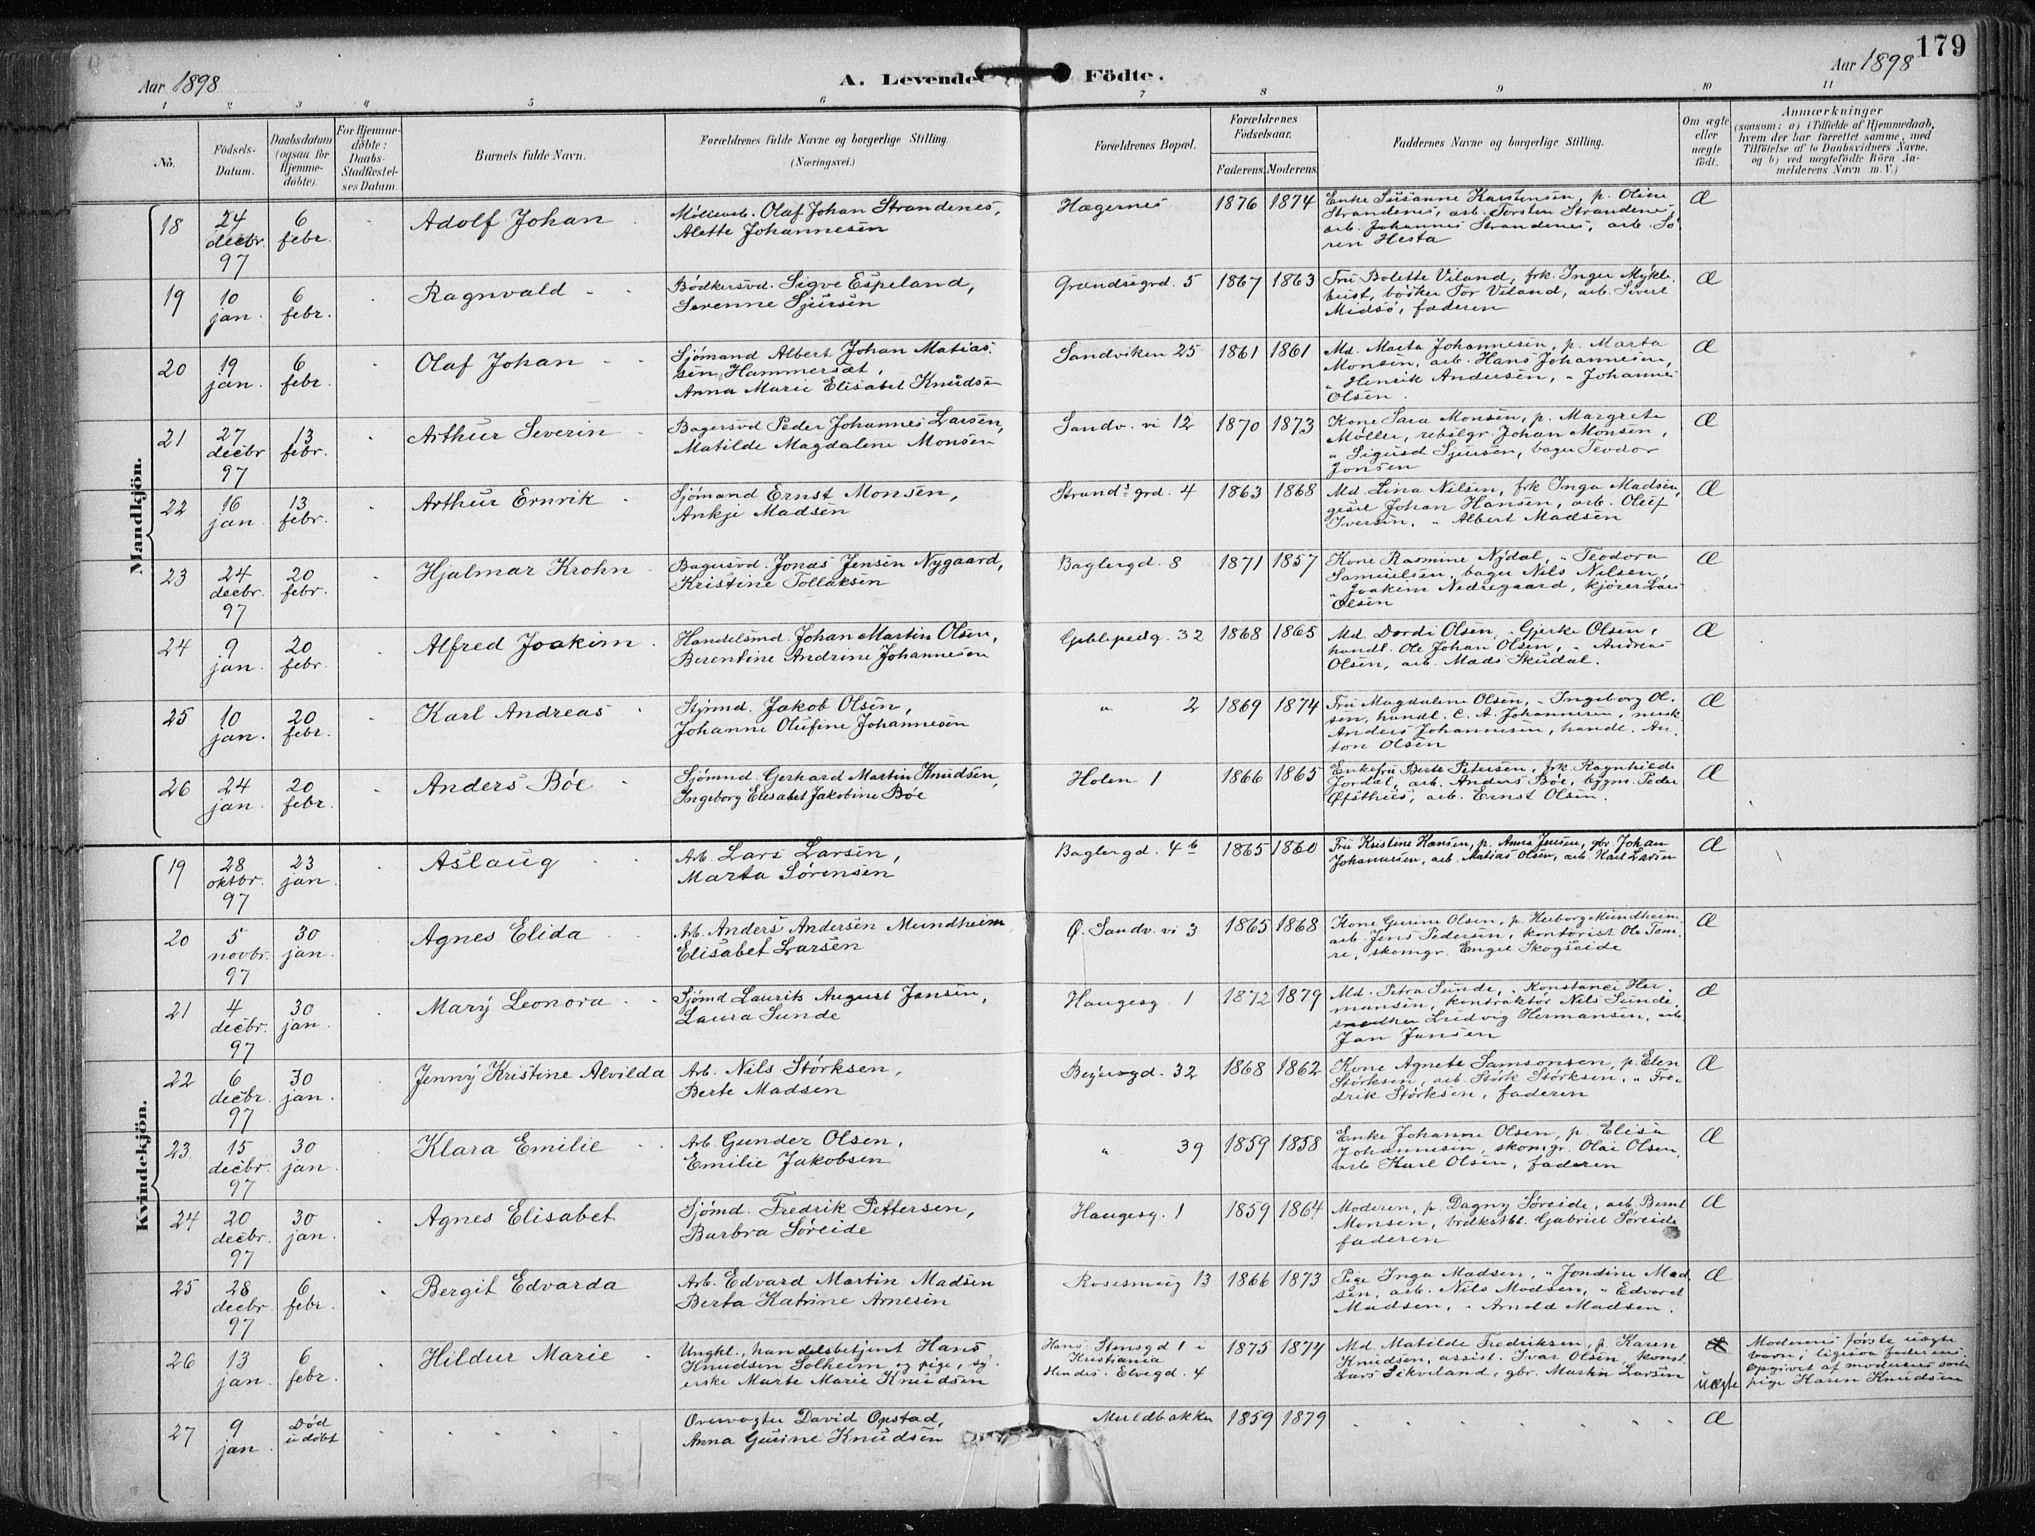 179
Aar 1898
A. Levende Födte.
Aar 1898
1 2 3 4 5 6 7 8 9 10 11
No.
Födsels-Datum.
Daabsdatum (ogsaa for Hjemme-döbte).
For Hjemme-döbte: Daabs-Stadfæstel-ses Datum.
Barnets fulde Navn.
Forældrenes fulde Navne og borgerlige Stilling. (Næringsvei.)
Forældrenes Bopæl.
Forældrenes Födselsaar.
Faderens. Moderens.
Faddernes Navne og borgerlige Stilling.
Om ægte eller uægte födt.
Anmærkninger
(saasom: a) i Tilfælde af Hjemmedaab, hvem der har forrettet samme, med Tilföielse af to Daabsvidners Navne, og b) ved uægtefödte Börn An-melderens Navn m. V.)
Mandkjön.
18 24 decbr. 97 6 febr. Adolf Johan Møllearb. Olaf Johan Strandenes, Alette Johannesen Hægernes 1876 1874 Enke Susanne Karstensen, p. Oline Strandenes, arb. Torsten Strandenes, arb. Johannes Strandenes, arb. Sören Hesta Æ
19 10 jan. 6 febr. Ragnvald Bødkersvd. Sigve Espeland, Serenne Sjursen Grændsegrd. 5 1867 1863 Fru Bolette Viland, frk. Inger Myklebust, bösker Tor Viland, arb. Sivert Midsö, faderen Æ
20 19 jan. 6 febr. Olaf Johan Sjömand Albert Johan Matiassen Hammersæt, Anna Marie Elisabet Knudsen Sandviken 25 1861 1861 Md. Marta Johannesen, p. Marta Monsen, arb. Hans Johannesen, " Henrik Andersen, " Johannes Olsen. Æ
21 27 decbr 97 13 febr. Arthur Severin Bagersvd Peder Johannes Larsen, Matilde Magdalene Monsen Sandv. vi 12 1870 1873 Kone Sara Monsen, p. Margrete Møller, rebslgr. Johan Monsen, " Sigurd Sjursen, bager Teodor Jonsen Æ
22 16 jan. 13 febr. Arthur Ernrik Sjömand Ernst Monsen, Ankje Madsen Strandsgrd. 4 1863 1868 Md Lina Nilsen, frk Inga Madsen, gesel Johan Hansen, arb. Oluf Iversen, " Albert Madsen Æ
23 24 decbr. 97 20 febr. Hjalmar Krohn Bagersvd. Jonas Jensen Nygaard, Kristine Tollaksen Baglergd. 8 1871 1857 Kone Rasmine Nydal, " Teodora Samuelsen, bager Nils Nilsen, " Joakim Nedregaard, kjörer Lars Olsen Æ
24 9 jan. 20 febr. Alfred Joakim Handelsmd. Johan Martin Olsen, Berentine Andrine Johannesen 32 1868 1865 Md. Dordi Olsen, " Gjerke Olsen, handl. Ole Johan Olsen, " Andreas Olsen, arb. Mads Skudal. Æ
25 10 jan. 20 febr. Karl Andreas Sjömd. Jakob Olsen, Johanne Olufine Johannesen " 2 1869 1874 Fru Magdalene Olsen, " Ingeborg Olsen, handl. C. A. Johannesen, Anders Johannesen, handl. Anton Olsen Æ
26 24 jan. 20 febr. Anders Böe Sjömnd. Gerhard Martin Knudsen, Ingeborg Elisabet Jakobine Böe Holen 1 1866 1865 Enkefru Berte Petersen, frk Ragnhilde Jordal, arb. Anders Böe, bygm. Peder Øfsthus, arb. Ernst Olsen. Æ
Kvindekjön.
19 28 oktbr. 97 23 jan. Aslaug Arb. Lars Larsen, Marta Sörensen Baglergd. 4b 1865 1860 Fru Kristine Hansen, p. Anna Jensen, gbr. Johan Johannesen, arb. Matias Olsen, arb. Karl Larsen Æ
20 5 novbr. 97 30 jan. Agnes Elida Arb. Anders Andersen Mundheim Elisabet Larsen Ø. Sandv. vi 3 1865 1868 Kone Gurine Olsen, p. Herborg Mundheim, arb. Jens Pedersen, kontorist Ole Tomre, skomgr. Engel Skogseide Æ
21 4 decbr. 97 30 jan. Mary Leonora Sjömd Laurits August Jansen, Laura Sunde Haugesg. 1 1872 1879 Md. Petra Sunde, " Konstance Hermansen, kontraktör Nils Sunde, snedker Ludvig Hermansen, arb. Jan Jansen Æ
22 6 decbr. 97 30 jan. Jenny Kristine Alvilda Arb. Nils Störksen, Berte Madsen Beyersgd. 32 1868 1862 Kone Agnete Samsonsen, p. Elen Störksen, arb. Störk Störksen, " Fredrik Störksen, faderen Æ
23 15 decbr. 97 30 jan. Klara Emilie Arb. Gunder Olsen, Emilie Jakobsen " 39 1859 1858 Enke Johanne Olsen, p. Elisa Johannesen, skomgr. Olai Olsen, arb Karl Olsen, faderen Æ
24 20 decbr. 97 30 jan. Agnes Elisabet Sjömd. Fredrik Pettersen, Barbra Söreide Haugesg. 1 1859 1864 Moderen, p. Dagny Söreide, arb. Bernt Monsen, Gabriel Söreide faderen Æ
25 28 decbr 97 6 febr. Bergit Edvarda Arb. Edvard Martin Madsen Berta Katrine Arnesen Rosesmug 13 1866 1873 Pige Inga Madsen, " Jondine Madsen, arb. Nils Madsen, " Edvard Madsen, " Arnold Madsen. Æ
26 13 jan. 6 febr. Hildur Marie Ungkl., handelsbetjent Hans Knudsen Solheim og pige, syerske Marte Marie Knudsen Hans: Stensgd 1 i Kristiania Hendes: Elvegd. 4 1875 1874 Md. Matilde Fredriksen, p. Karen Knudsen, assist. Ivar Olsen, konst. Lars Sekviland, gbr. Martin Larsen uægte Moderens første uægte barn, ligesaa faderens. Opgivet af moderens søster pige Karen Knudsen
27 9 jan. Död udöbt Overvogter David Opstad, Anna Gurine Knudsen Muldbakken 1859 1879 Æ